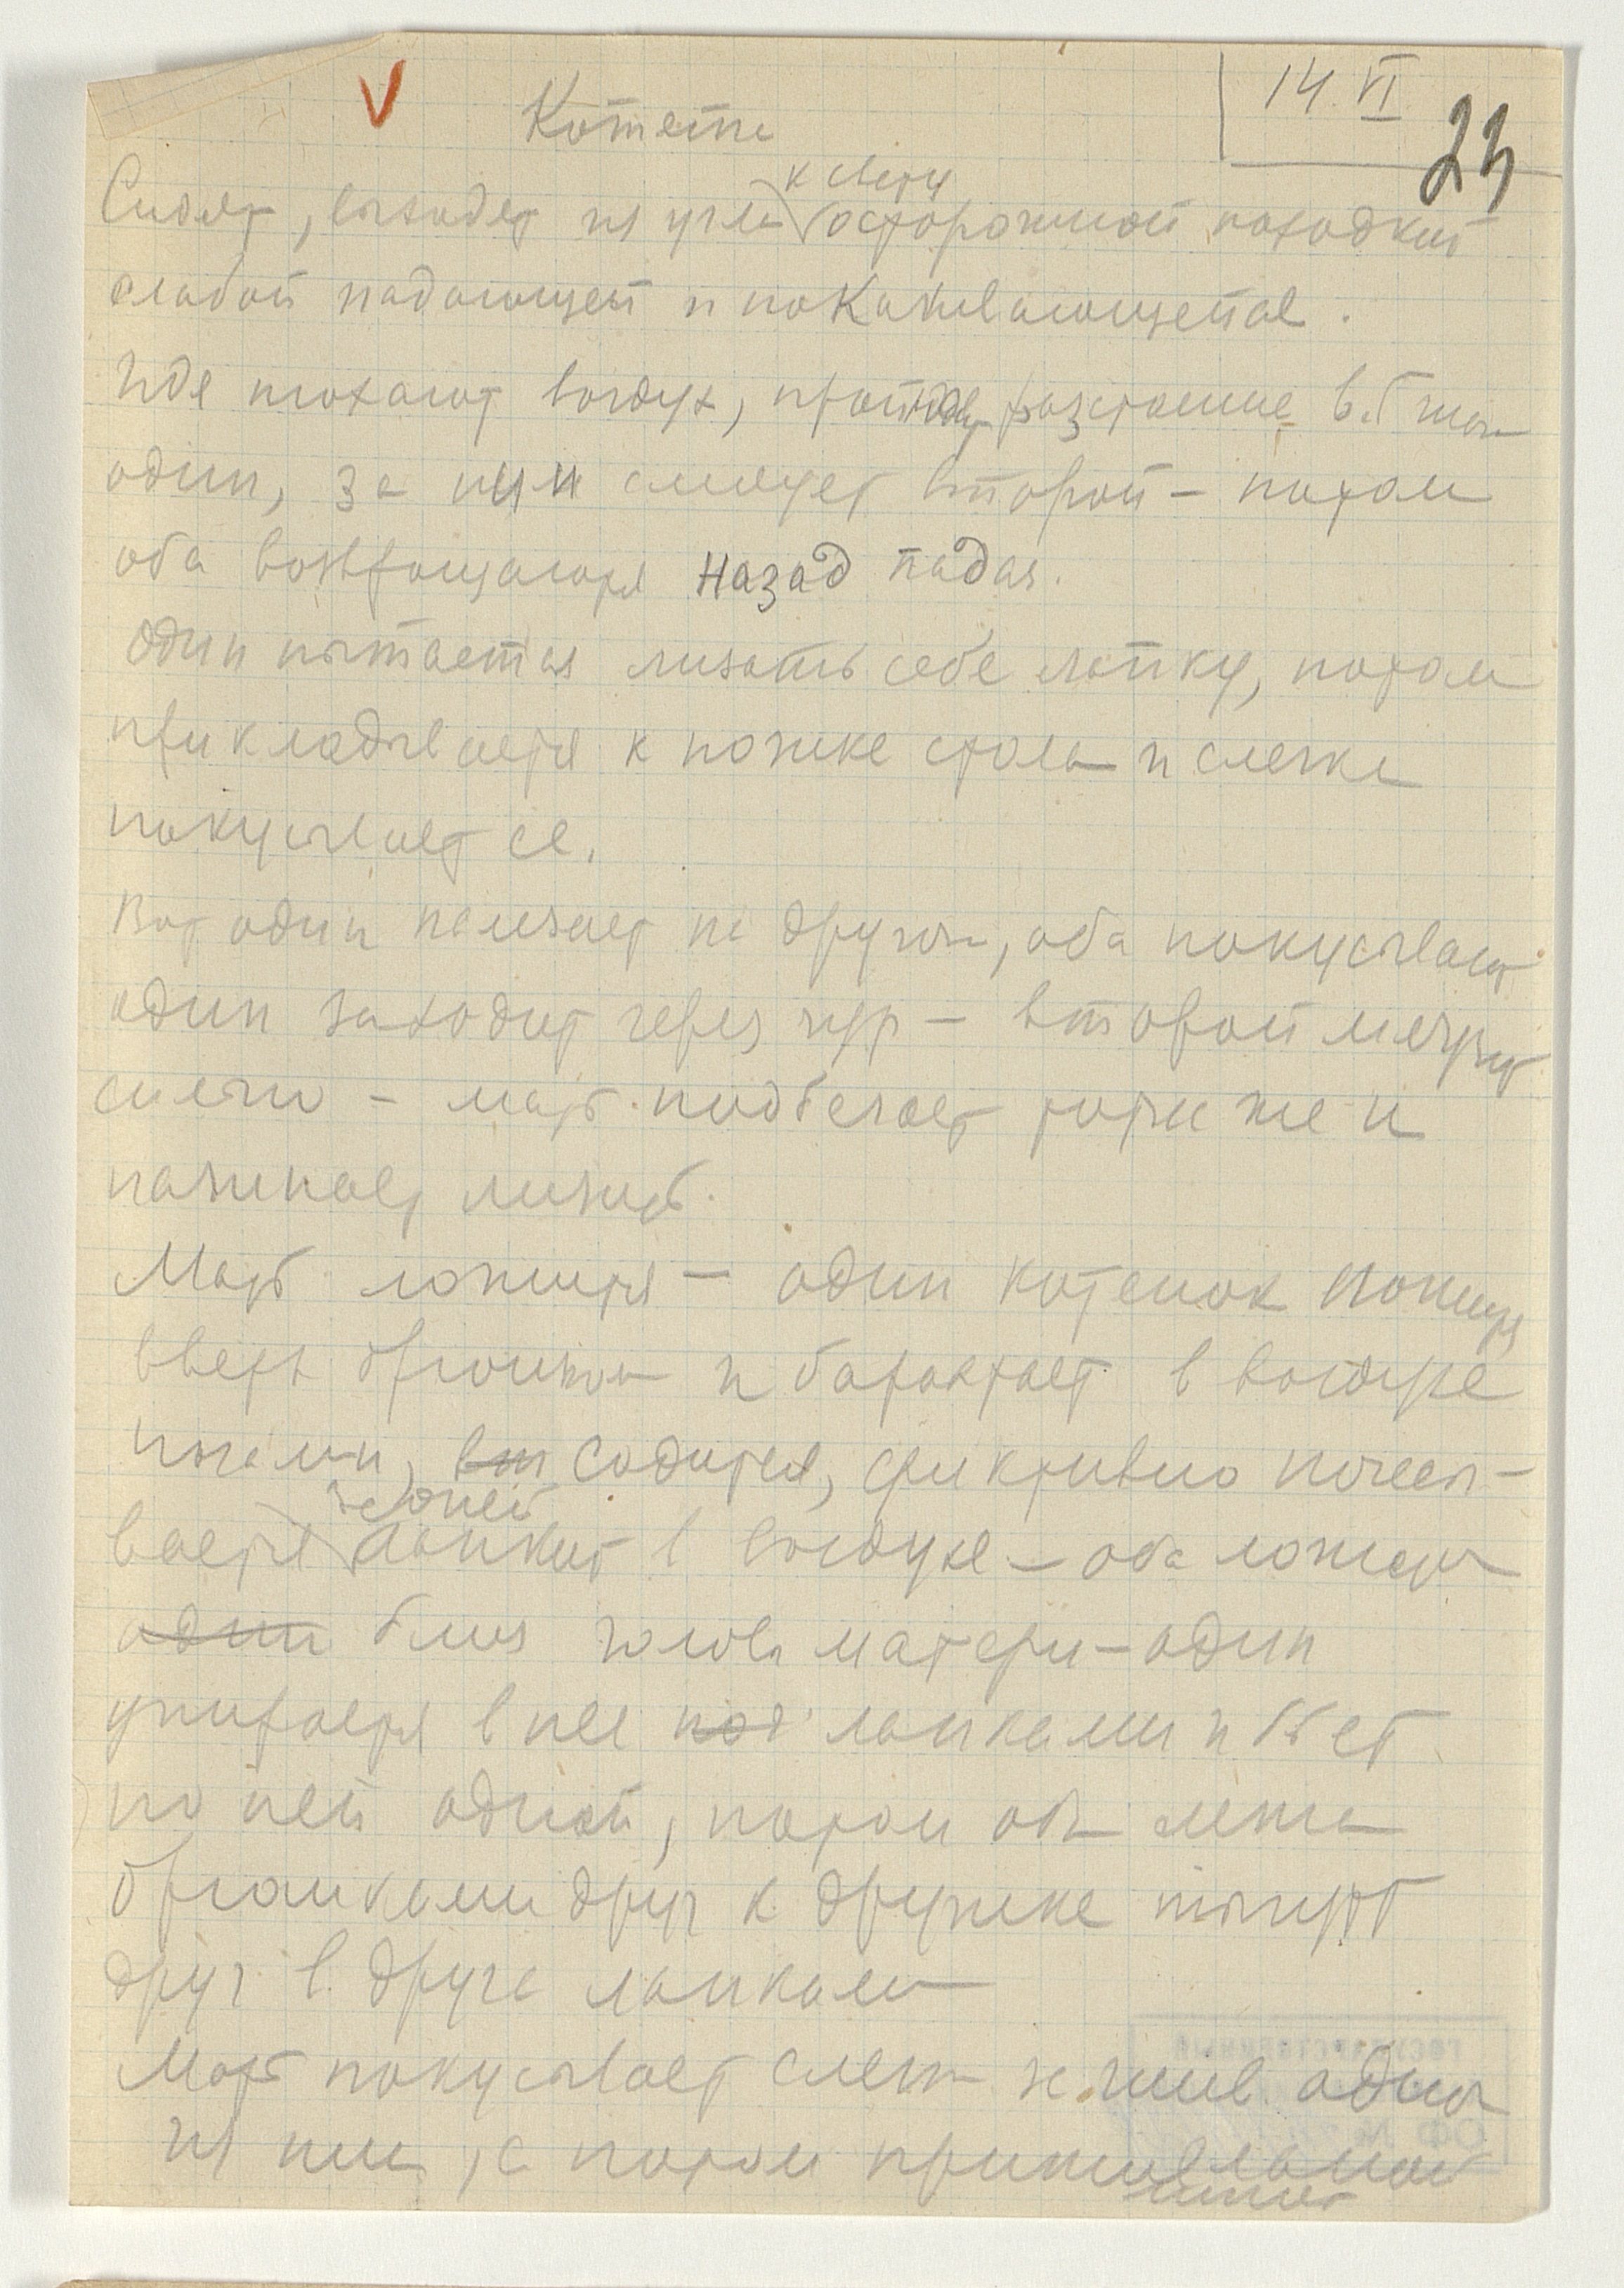 14.VI
23
Котята
к свету
Сидят, выходят из угла осторожной походкой
слабой падающей и покачивающейся.
Идя нюхают воздух, пройдя расстояние в
один, за ним следует второй – потом
оба возвращаются назад падая.
Один пытается лизать себе лапку, потом
прикладывается к ножке стола и слегка
покусывает ее.
Вот один налезает на другого, оба покусывают
один заходит через – второй
– мать подбегает тотчас же и
начинает лизать.
Мать ложится – один котенок ложится
вверх брюшком и барахтает в воздухе
ногами, вт садится, почесы-
задней
вается лапкой в воздухе – оба ложатся
один близ головы матери – один
упирается в нее под лапками и бьет
по ней одной, потом оба лежа
брюшками друг к дружке тычут
друг в друга лапками
Мать покусывает слегка за одного
из них, а потом